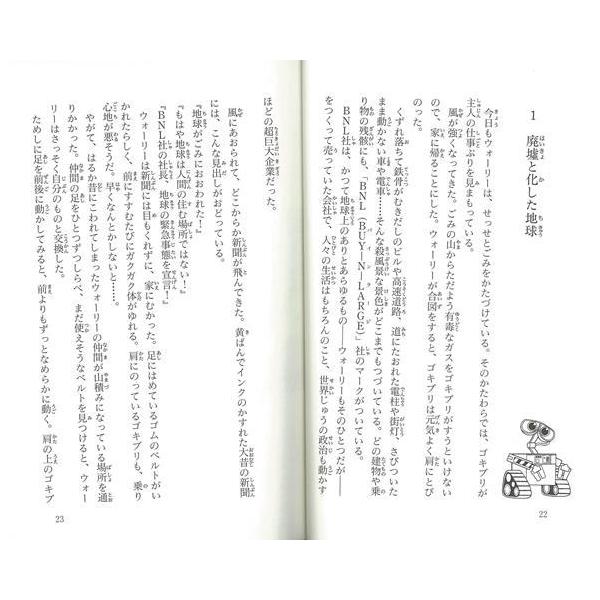 1 廃墟と化した地球
今日もウォーリーは、せっせとごみをかたづけている。そのかたわらでは、ゴキブリが
主人の仕事ぶりを見まもっている。
風が強くなってきた。ごみの山からただよう有毒なガスをゴキブリがすうといけない
ので、家に帰ることにした。ウォーリーが合図をすると、ゴキブリは元気よく肩にとび
のった。
くずれ落ちて鉄骨がむきだしのビルや高速道路、道にたおれた電柱や街灯、さびついた
まま動かない車や電車……そんな殺風景な景色がどこまでもつづいている。どの建物や乗
り物の残骸にも、「BNL(BUY-N-LARGE)」社のマークがついている。
BNL社は、かつて地球上のありとあらゆるもの——ウォーリーもそのひとつだが——
をつくって売っていた会社で、人々の生活はもちろんのこと、世界じゅうの政治も動かす
22
ほどの超巨大企業だった。
風にあおられて、どこからか新聞が飛んできた。黄ばんでインクのかすれた大昔の新聞
には、こんな見出しがおどっている。
『地球がごみにおおわれた!』
『もはや地球は人間の住む場所ではない!』
『BNL社の社長、地球の緊急事態を宣言!』
ウォーリーは新聞には目もくれずに、家にむかった。足にはめているゴムのベルトがい
かれたらしく、前にすすむたびにガクガク体がゆれる。肩にのっているゴキブリも、乗り
心地が悪そうだ。早くなんとかしないと……。
やがて、はるか昔にこわれてしまったウォーリーの仲間が山積みになっている場所を通
りかかった。仲間の足をひとつずつしらべ、まだ使えそうなベルトを見つけると、ウォー
リーはさっそく自分のものと交換した。
ためしに足を前後に動かしてみると、前よりもずっとなめらかに動く。肩の上のゴキブ
23